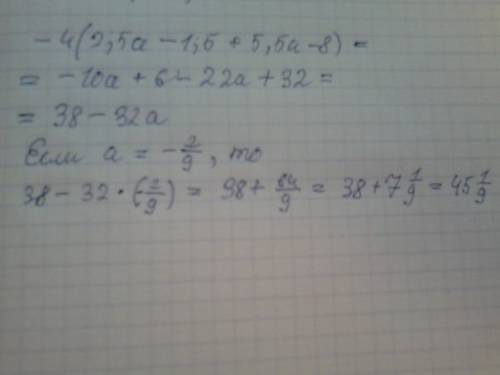 -4(2,5a - 1,5 + 5,5a - 8) =
= -10a + 6 - 22a + 32 =
= 38 - 32a
Если a = -2/9, то
38 - 32 · (2/9) = 38 + 64/9 = 38 + 7 1/9 = 45 1/9